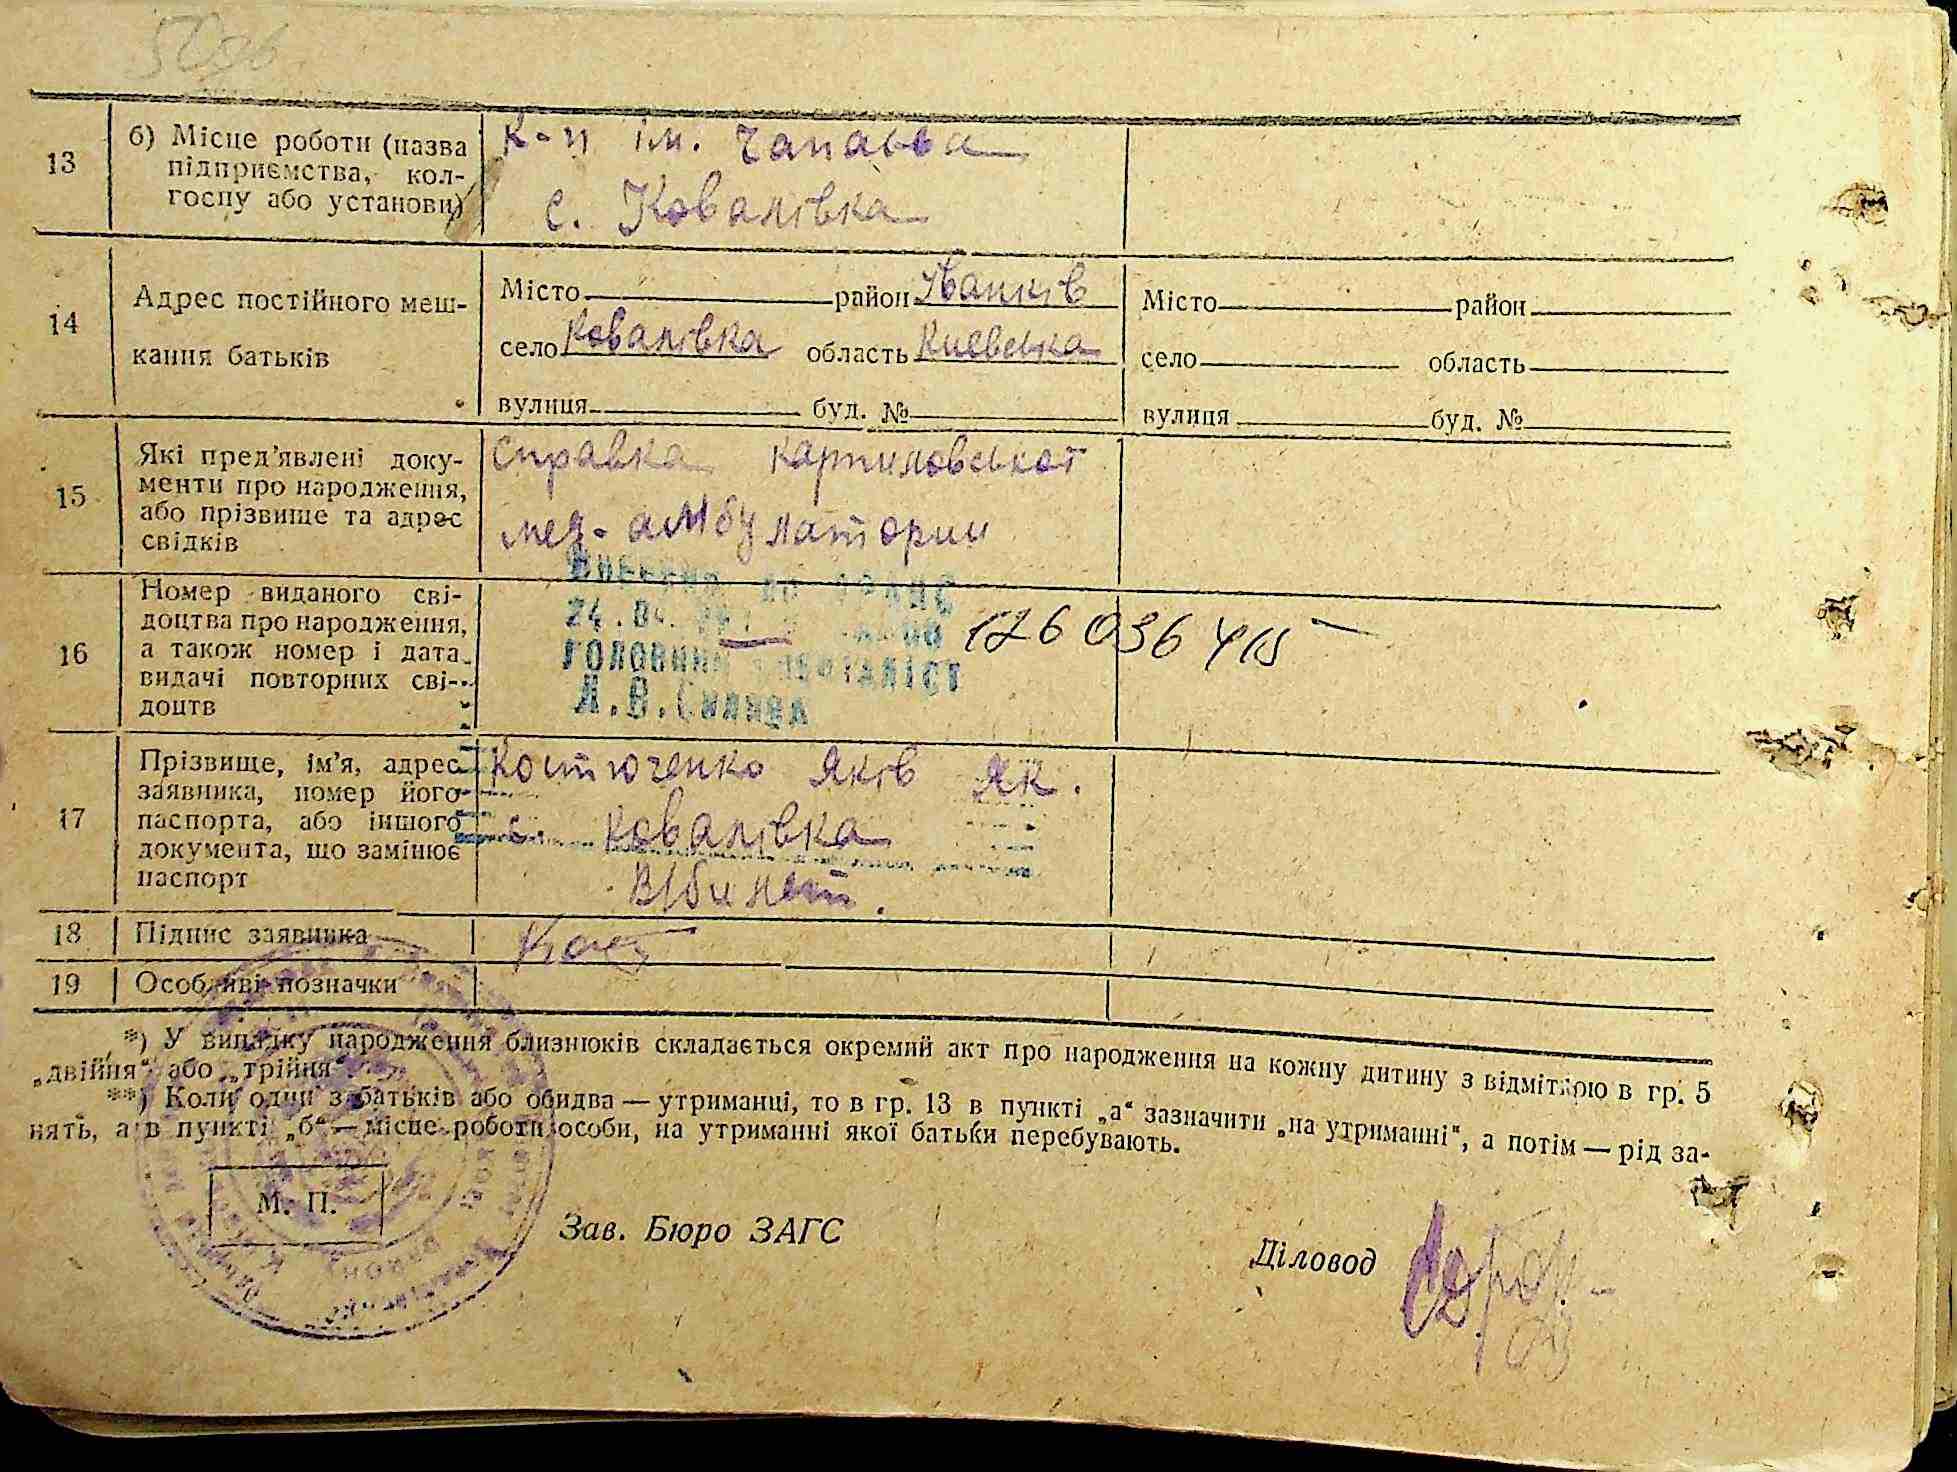 13
б) Місце роботи (назва
підприємства, кол-
госпу або установи)
к-п ім. Чапаєва
с. Ковалівка
14
Адрес постійного меш-
кання батьків
Місто район Іванків
село Ковалівка область Киевська
вулиця буд. №
Місто район
село область
вулиця буд. №
15
Які пред’явлені доку-
менти про народження,
або прізвище та адрес
свідків
справка карпиловської
мед-амбулатории
16
Номер виданого сві-
доцтва про народження,
а також номер і дата
видачі повторних сві-
доцтв
24.04.
головний спеціаліст
126036415
17
Прізвище, ім’я, адрес
заявника, номер його
паспорта, або іншого
документа, що замінює
паспорт
Костюченко Яків Як.
с. Ковалівка
18
Підпис заявника
Кост
19
Особливі позначки
*) У випадку народження близнюків складається окремий акт про народження на кожну дитину з відміткою в гр. 5
„двійня“ або „трійня“.
**) Коли один з батьків або обидва — утриманці, то в гр. 13 в пункті „а“ зазначити „на утриманні“, а потім — рід за-
нять, а в пункті „б“ — місце роботи особи, на утриманні якої батьки перебувають.
М. П.
Зав. Бюро ЗАГС
Діловод